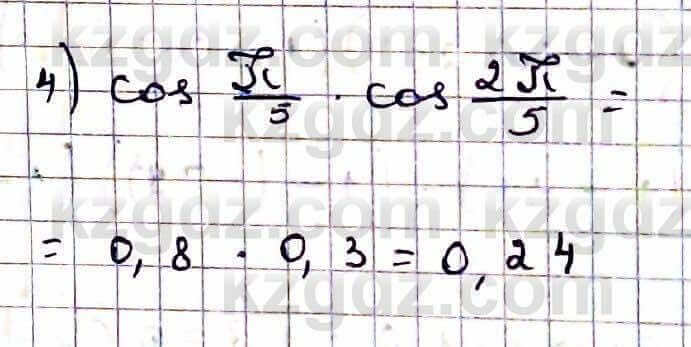 4) cos π/5 · cos 2π/5 =
= 0,8 · 0,3 = 0,24
kzgdz.com kzgdz
kzgdz.com
kzgdz.com kzgdz
kzgdz.com